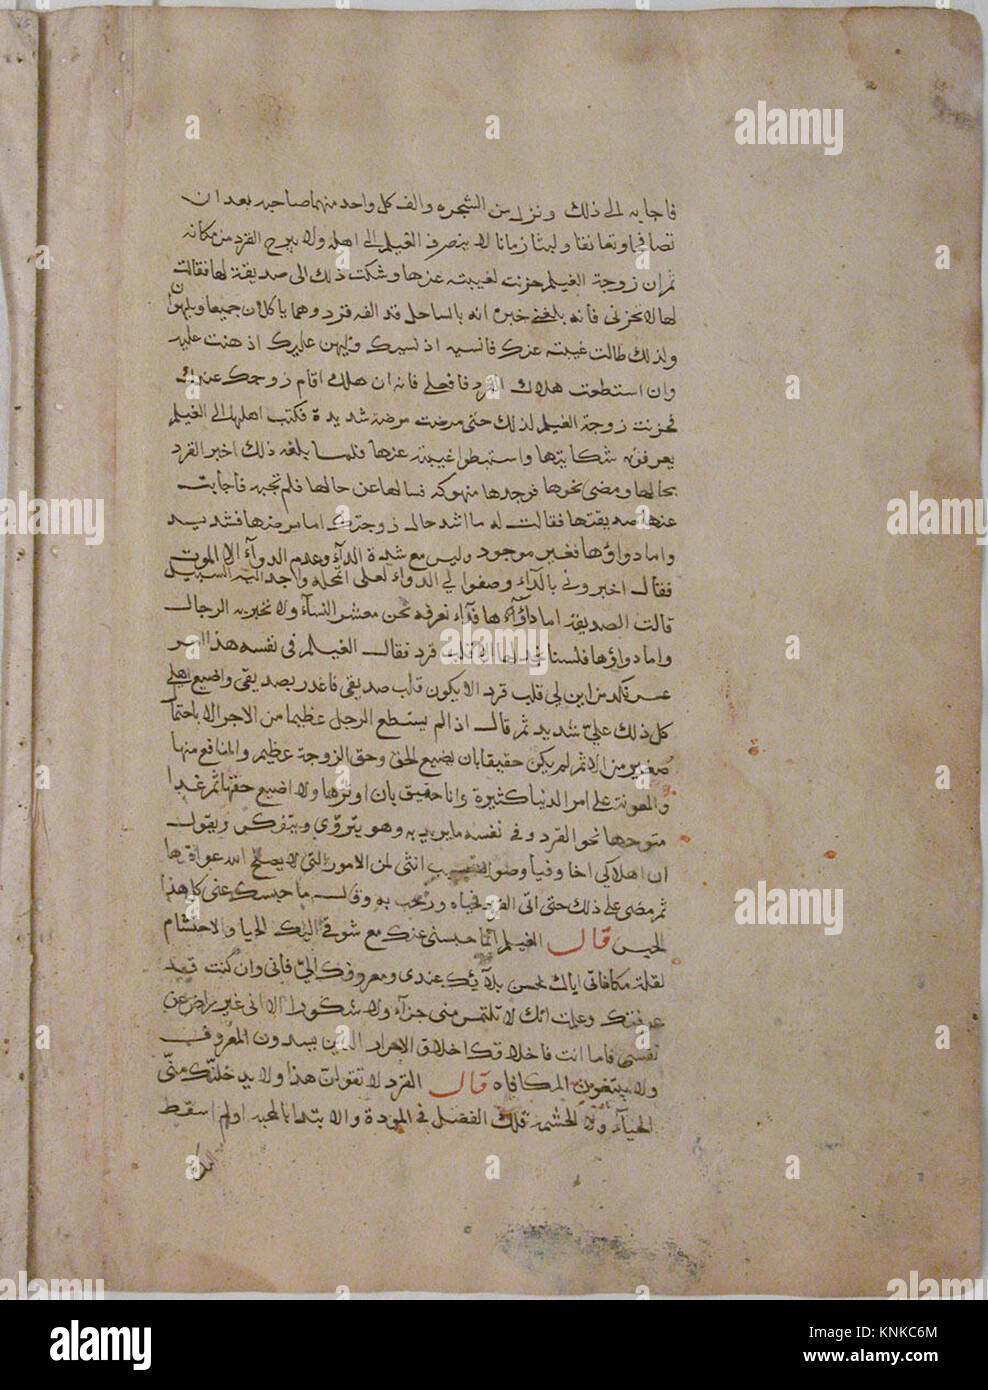 فاجابه الى ذلك ونزل من الشجره والف كل واحد منهما صاحبه بعد ان
تصافحا وتعانقا ولبثا زمانا لا ينصرف الغيلم الى اهله ولا يبرح القرد من مكانه
ثم ان زوجة الغيلم حزنت لغيبته عنها وشكت ذلك الى صديقة لها فقالت
لها لا تحزنى فانه بلغنى خبره انه بالساحل قد الفه قرد وهما ياكلان جميعا ويلهوان
ولذلك طالت غيبته عنك فانسيه اذ نسيك وليهن عليك اذ هنت عليه
وان استطعت هلاك القرد فافعلى فانه ان هلك اقام زوجك عندك
فحزنت زوجة الغيلم لذلك حتى مرضت مرضة شديدة فكتب اهلها الى الغيلم
يعرفونه شكايتها واستبطوا غيبته عنها فلما بلغه ذلك اخبر القرد
بحالها ومضى نحوها فوجدها منهوكة فسالها عن حالها فلم تجبه فاجابت
عنها صديقتها فقالت له ما اشد حال زوجتك اما مرضها فشديد
واما دواؤها فغير موجود وليس مع شدة الدآء وعدم الدوآء الا الموت
فقال اخبرونى بالدآء وصفوا لى الدواء لعلى اتحمله واجد اليه السبيل
قالت الصديقة اما دآؤها فدآء نعرفه نحن معشر النسآء ولا نخبر به الرجال
واما دواؤها فلسنا نجد لها الا قلب قرد فقال الغيلم فى نفسه هذا امر
عسر من اين لى قلب قرد الا يكون قلب صديقى فاغدر بصديقى واضيع اهلى
كل ذلك علىّ شديد ثم قال اذا لم يستطع الرجل عظيما من الاجر الا باحتمال
صغير من الاثم لم يكن حقيقا بان يضيع الحق وحق الزوجة عظيم والمنافع منها
والمعونة على امر الدنيا كثيرة وانا حقيق بان اوثرها ولا اضيع حقها ثم غدا
متوجها نحو القرد وفى نفسه ما يريد به وهو يتروّى ويتفكر ويقول
ان اهلاكى اخا وفيا انثى لمن الامور التى لا يصلح الله عواقبها
ثم مضى على ذلك حتى اتى القرد فحياه ورحب به وقال ما حبسك عنى كل هذا
الحين قال الغيلم انما حبسنى عنك مع شوقى اليك الحيا والاحتشام
لقلة مكافاتى اياك بحسن بلآئك عندى ومعروفك الىّ فانى وان كنت قد
عرفتك وعلمت انك لا تلتمس منى جزآء ولا شكورا الا انى غير راض عن
نفسى فاما انت فاخلاقك اخلاق الاحرار الذين يسدون المعروف
ولا يبتغون المكافاه قال القرد لا تقولن هذا ولا يدخلنك منّى
الحيآء ولا الحشمه فلك الفضل فى المودة والابتدا بالمحبه اولم اسقط
اليك
a
alamy
KNKC6M
www.alamy.com